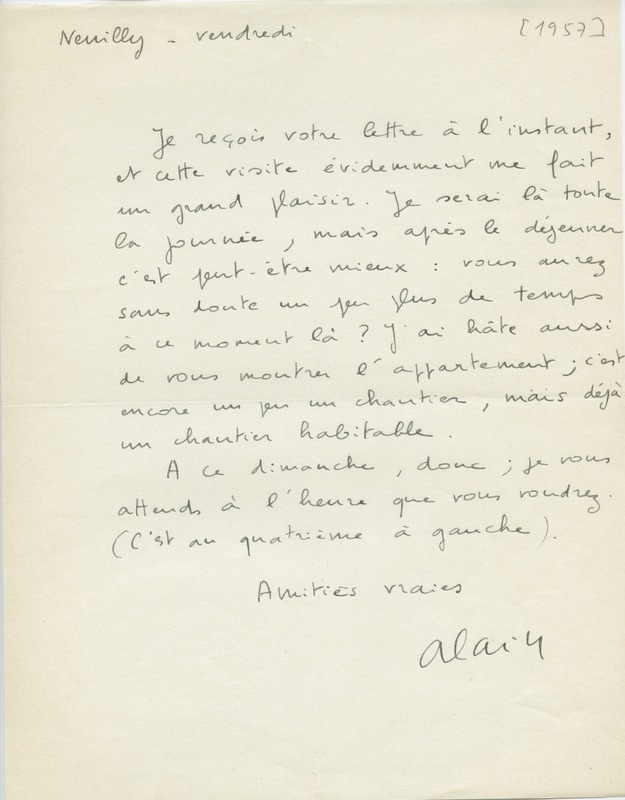 Neuilly - vendredi [1957]
Je reçois votre lettre à l'instant,
et cette visite évidemment me fait
un grand plaisir. Je serai là toute
la journée, mais après le déjeuner
c'est peut-être mieux : vous aurez
sans doute un peu plus de temps
à ce moment là ? J'ai hâte aussi
de vous montrer l'appartement ; c'est
encore un peu un chantier, mais déjà
un chantier habitable.
A ce dimanche, donc ; je vous
attends à l'heure que vous voudrez.
(C'est au quatrième à gauche).
Amitiés vraies
Alain